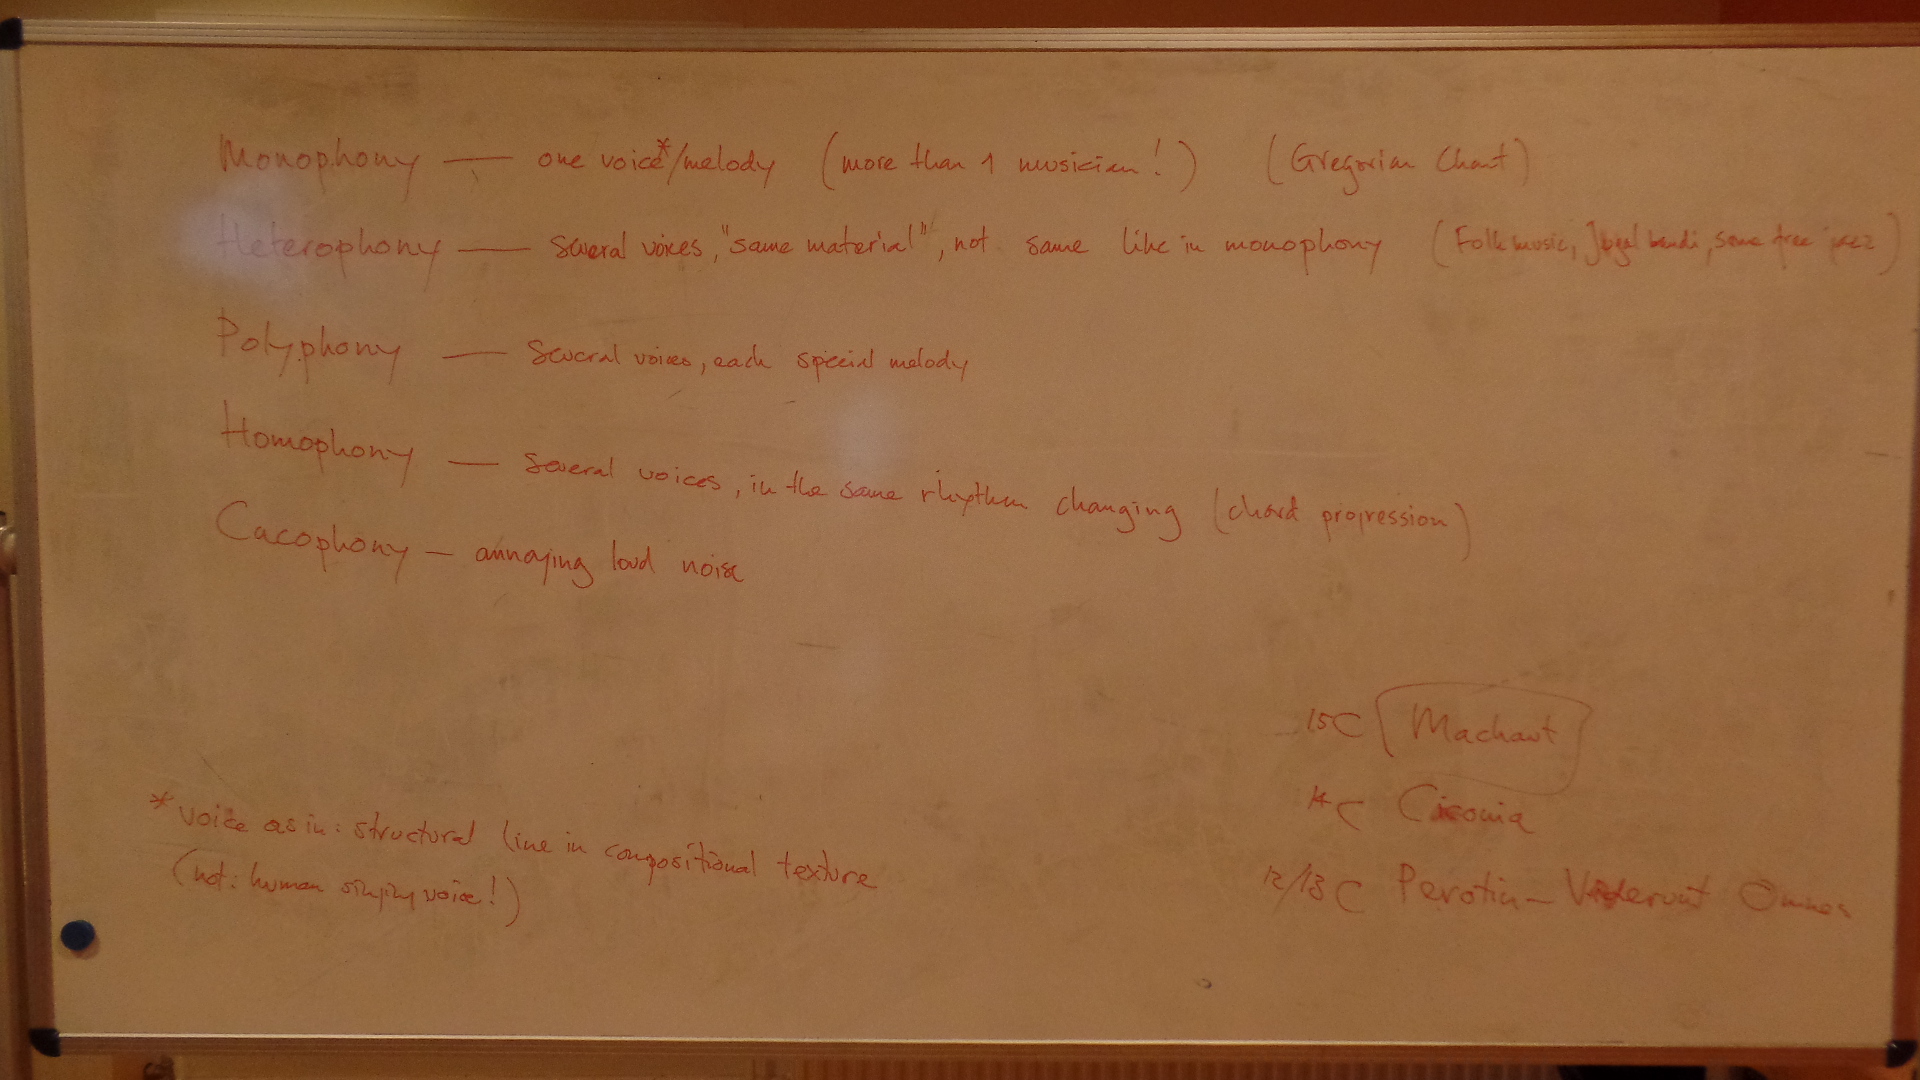 Monophony — one voice*/melody (more than 1 musician!) (Gregorian Chant)
Heterophony — several voices, "same material", not same like in monophony (Folk music, some free jazz)
Polyphony — Several voices, each special melody
Homophony — Several voices, in the same rhythm changing (chord progression)
Cacophony — annoying loud noise
15C Machaut
14C Ciconia
12/13C Perotin — Viderunt Omnes
* voice as in: structural line in compositional texture
(not: human singing voice!)